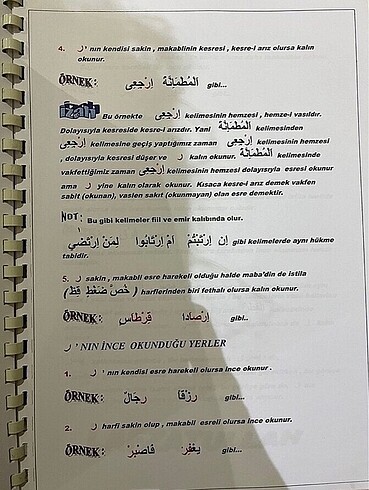 4. ر ' nın kendisi sakin , makablinin kesresi , kesre-i arız olursa kalın
okunur.
ÖRNEK: الْمُطْمَئِنَّةُ اِرْجِعِى gibi...
İzah Bu örnekte اِرْجِعِى kelimesinin hemzesi , hemze-i vasıldır.
Dolayısıyla kesreside kesre-i arızdır. Yani الْمُطْمَئِنَّةُ kelimesinden
اِرْجِعِى kelimesine geçiş yaptığımız zaman اِرْجِعِى kelimesinin hemzesi
, dolayısıyla kesresi düşer ve ر kalın okunur. الْمُطْمَئِنَّةُ kelimesinde
vakfettiğimiz zaman اِرْجِعِى kelimesinin hemzesi dolayısıyla esresi okunur
ama ر yine kalın olarak okunur. Kısaca kesre-i arız demek vakfen
sabit (okunan), vaslen sakıt (okunmayan) olan esre demektir.
NOT: Bu gibi kelimeler fiil ve emir kalıbında olur.
اِنِ ارْتَبْتُمْ اَمِ ارْتَابُوا لِمَنِ ارْتَضَي gibi kelimelerde aynı hükme
tabidir.
5. ر sakin , makabli esre harekeli olduğu halde maba'din de istila
( خُصَّ ضَغْطٍ قِظْ ) harflerinden biri fethalı olursa kalın okunur.
ÖRNEK: اِرْصَادًا قِرْطَاسٍ gibi..
ر ' NIN İNCE OKUNDUĞU YERLER
1. ر ' nın kendisi esre harekeli olursa ince okunur .
ÖRNEK: رِزْقًا رِجَالٌ gibi...
2. ر harfi sakin olup , makabli esreli olursa ince okunur.
ÖRNEK: يَغْفِرْ فَاصْبِرْ gibi...